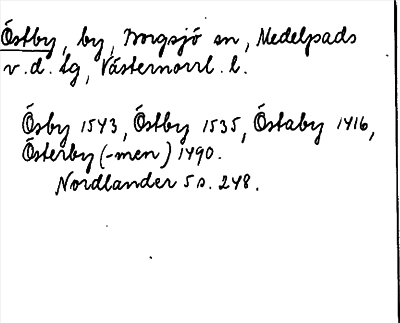 Östby, by, Borgsjö sn, Medelpads
v. d. tg, Västernorrl. l.
Ösby 1543, Östby 1535, Östaby 1416,
Österby (-men) 1490.
Nordlander 5 s. 248.